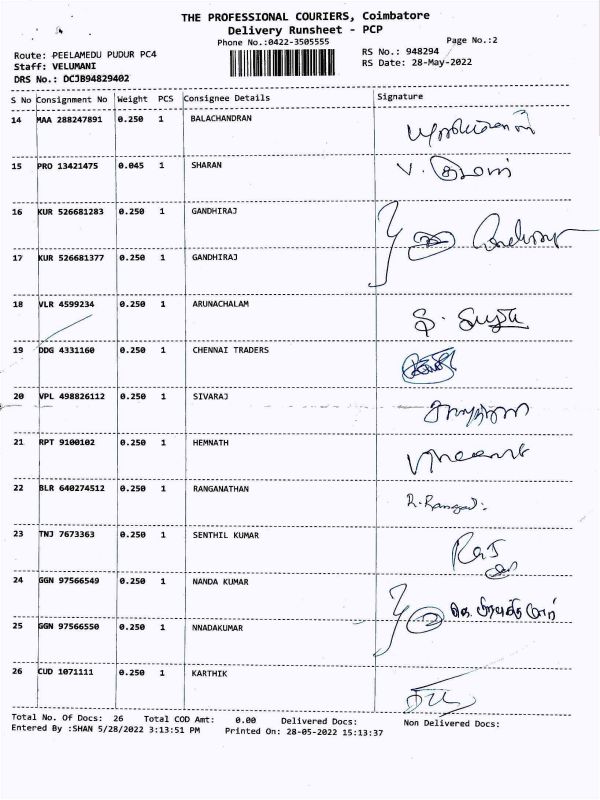 THE PROFESSIONAL COURIERS, Coimbatore
Delivery Runsheet - PCP
Phone No.:0422-3505555
Page No.:2
Route: PEELAMEDU PUDUR PC4
RS No.: 948294
Staff: VELUMANI
RS Date: 28-May-2022
DRS No.: DCJB94829402
S No Consignment No Weight PCS Consignee Details Signature
14 MAA 288247891 0.250 1 BALACHANDRAN
15 PRO 13421475 0.045 1 SHARAN
16 KUR 526681283 0.250 1 GANDHIRAJ
17 KUR 526681377 0.250 1 GANDHIRAJ
18 VLR 4599234 0.250 1 ARUNACHALAM
19 DDG 4331160 0.250 1 CHENNAI TRADERS
20 VPL 498826112 0.250 1 SIVARAJ
21 RPT 9100102 0.250 1 HEMNATH
22 BLR 640274512 0.250 1 RANGANATHAN
23 TNJ 7673363 0.250 1 SENTHIL KUMAR
24 GGN 97566549 0.250 1 NANDA KUMAR
25 GGN 97566550 0.250 1 NNADAKUMAR
26 CUD 1071111 0.250 1 KARTHIK
Total No. Of Docs: 26 Total COD Amt: 0.00 Delivered Docs: Non Delivered Docs:
Entered By :SHAN 5/28/2022 3:13:51 PM Printed On: 28-05-2022 15:13:37